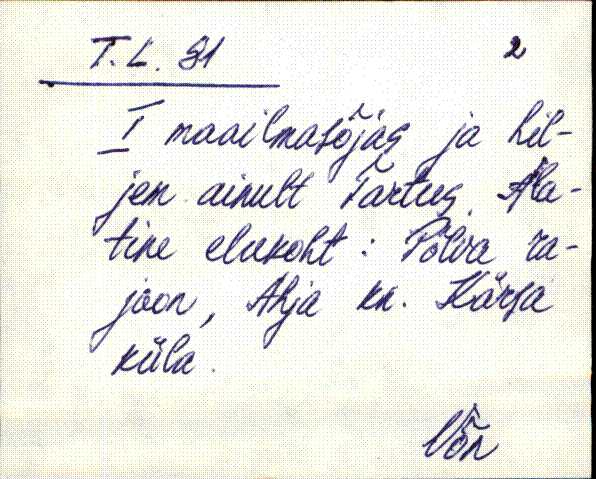 T. L. 81 2
I maailmasõjas ja hil-
jem ainult Tartus. Ala-
tine elukoht: Põlva ra-
joon, Ahja kn. Kärsa
küla.
Võn